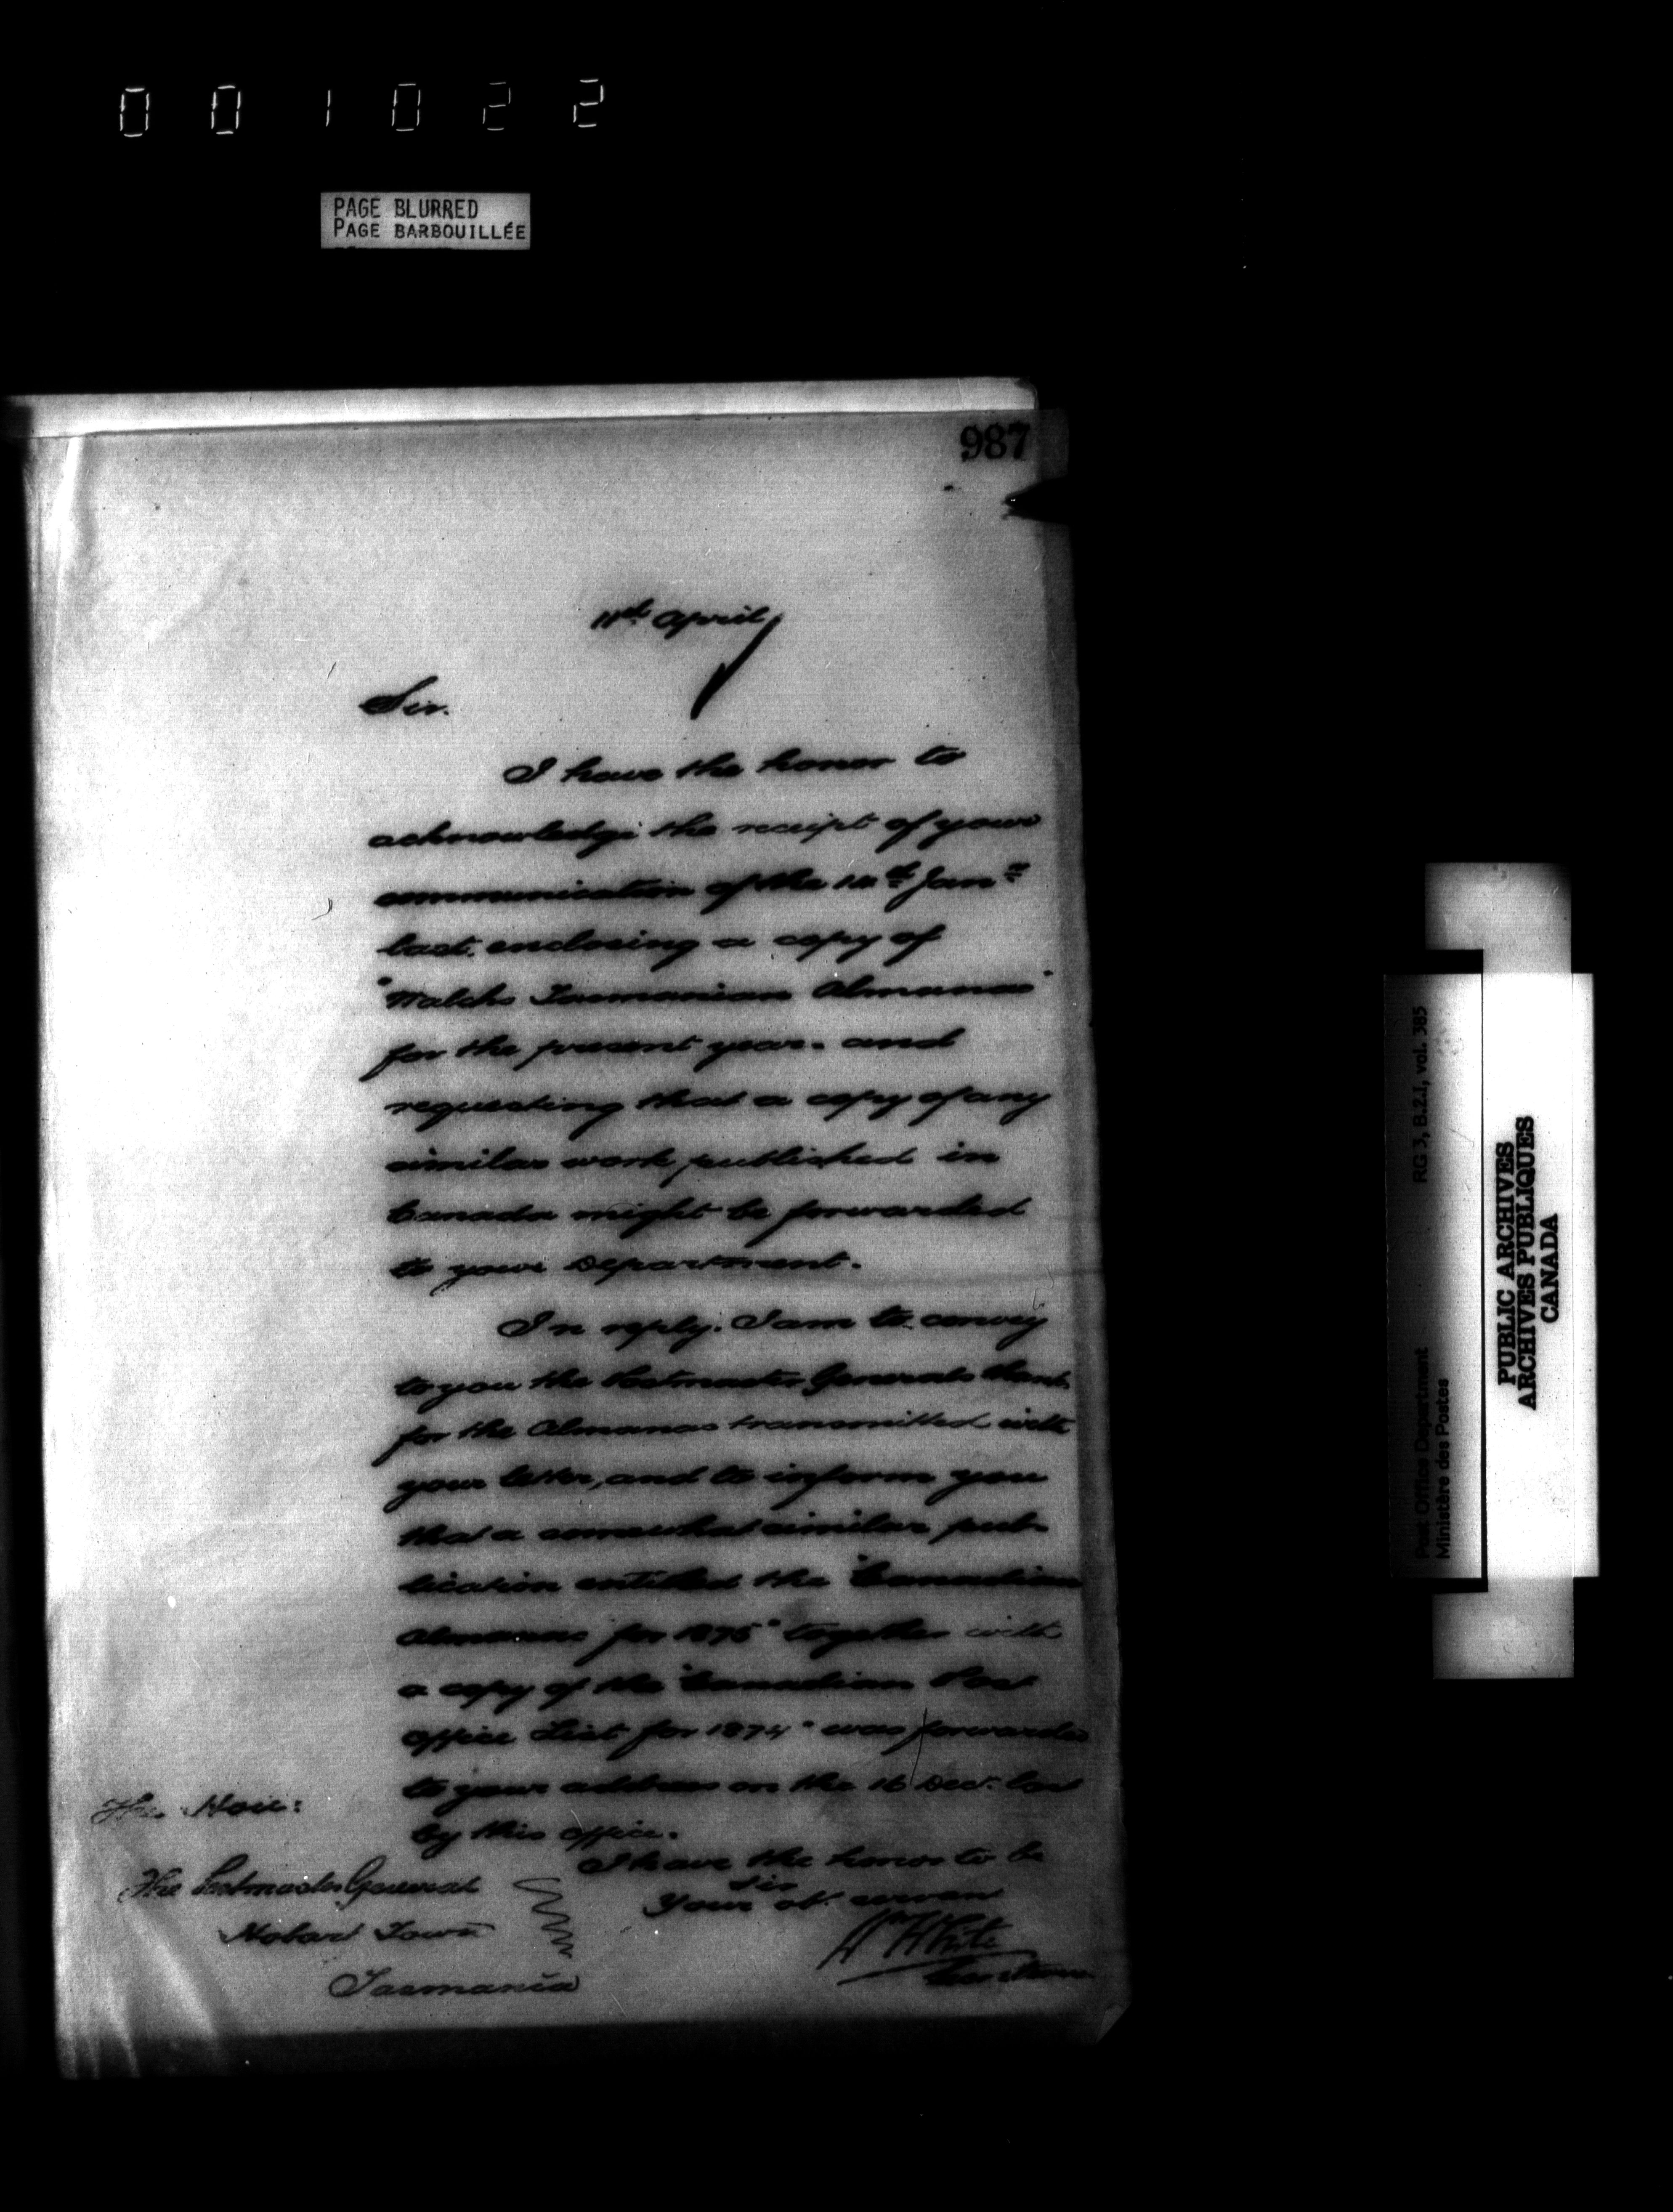 001022
PAGE BLURRED
PAGE BARBOUILLÉE
987
11th April
Sir.
I have the honor to
acknowledge the receipt of your
communication of the 14th Jany
last, enclosing a copy of
"Walchs Tasmanian Almanac"
for the present year. and
requesting that a copy of any
similar work published in
Canada might be forwarded
to your Department.
In reply. I am to convey
to you the Postmaster Generals thanks
for the Almanac transmitted with
your letter, and to inform you
that a somewhat similar pub-
lication entitled the "Canadian
Almanac for 1875" together with
a copy of the "Canadian Post
Office List for 1874" was forwarded
to your address on the 16 Decr. last
by this office.
I have the honor to be
Sir
Your ob. servant
Wm White
Secretary
The Hon:
The Postmaster General
Hobart Town
Tasmania
Post Office Department
Ministère des Postes
RG 3, B.2.I, vol. 385
PUBLIC ARCHIVES
ARCHIVES PUBLIQUES
CANADA